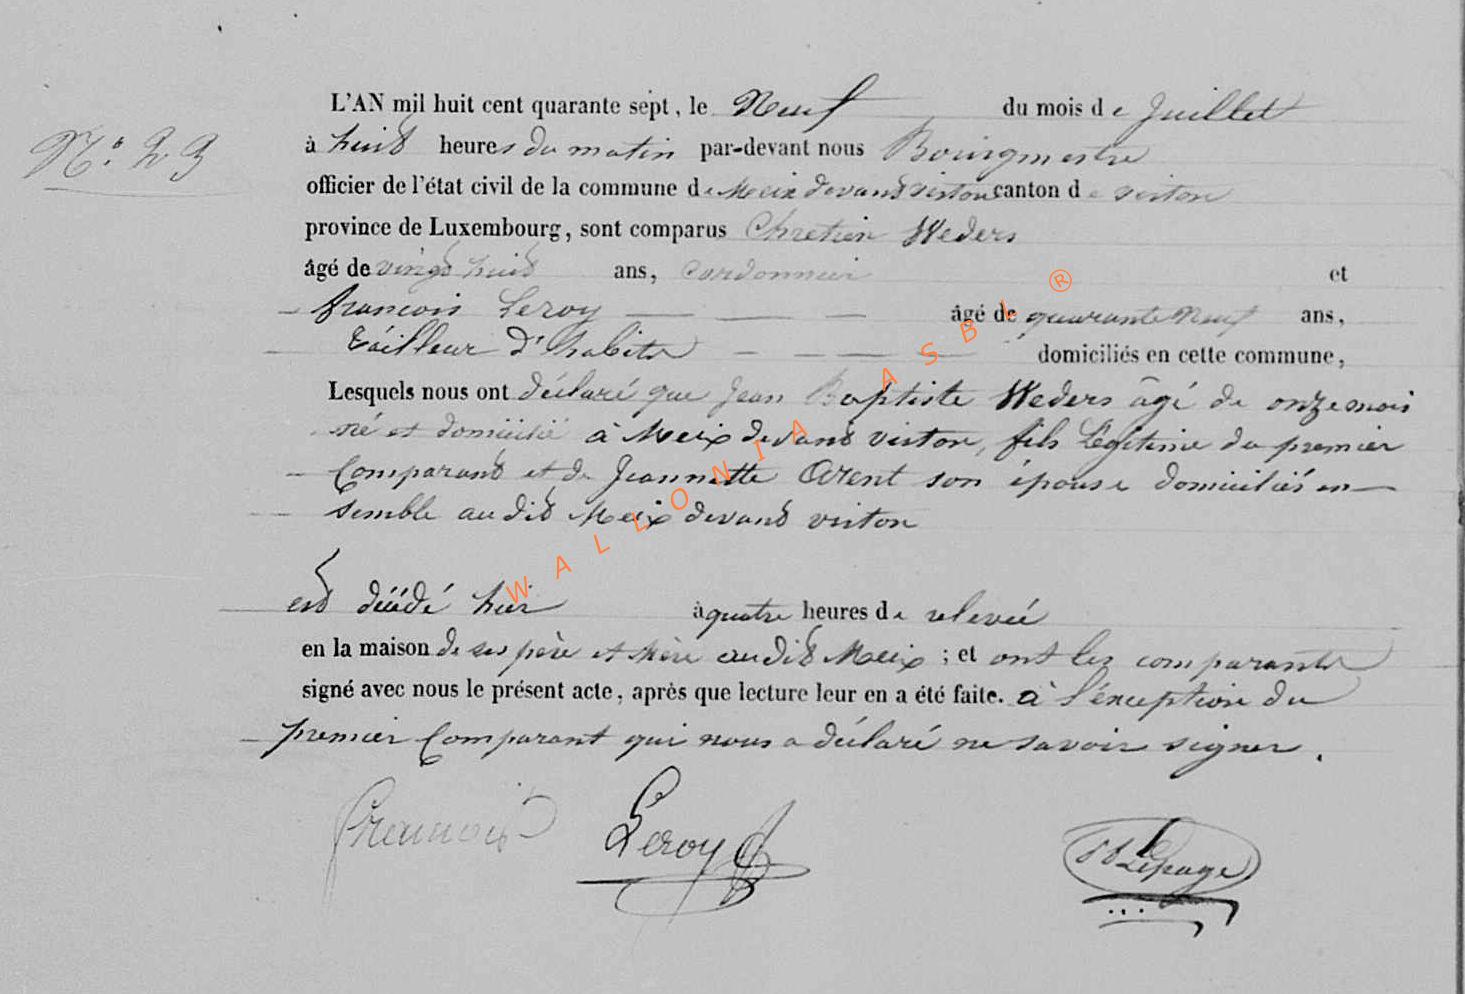 L'AN mil huit cent quarante sept, le Neuf du mois de Juillet
N° 23
à huit heures du matin par-devant nous Bourgmestre
officier de l'état civil de la commune de Meix devant virton canton de virton
province de Luxembourg, sont comparus Chretien Weders
âgé de vingt huit ans, Cordonnier et
françois Leroy âgé de quarante Neuf ans,
tailleur d'habits domiciliés en cette commune,
Lesquels nous ont déclaré que Jean Baptiste Weders âgé de onze mois
né et domicilié à Meix devant virton, fils Légitime du premier
Comparant et de Jeannette Arent son épouse domiciliés en
semble audit Meix devant virton
est décédé hier à quatre heures de relevée
en la maison de ses père et Mère audit Meix ; et ont les comparants
signé avec nous le présent acte, après que lecture leur en a été faite. à l'éxception du
premier Comparant qui nous a déclaré ne savoir signer.
francois Leroy
Lepage
WALLONIA ASBL ®